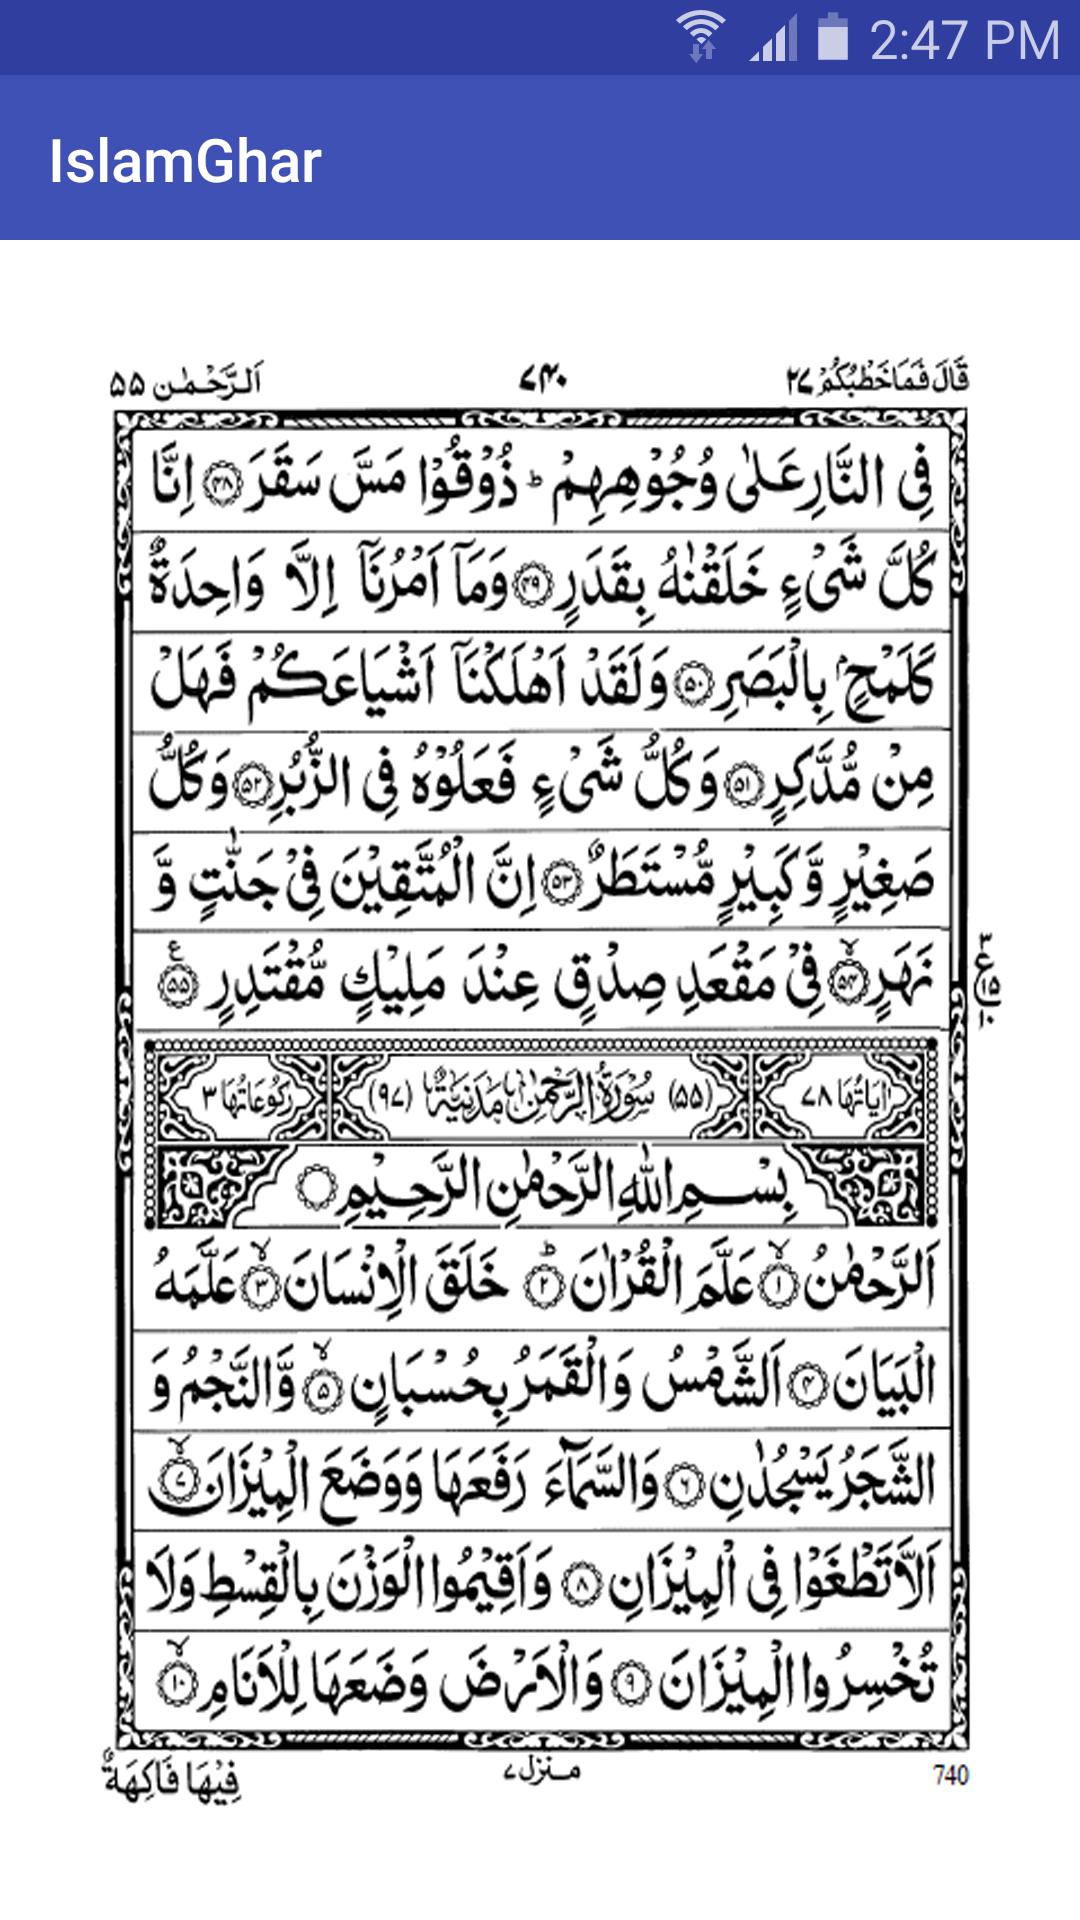 2:47 PM
IslamGhar
قَالَ فَمَا خَطْبُكُمْ ٢٧
٧٤٠
اَلرَّحْمٰن ٥٥
فِى النَّارِ عَلٰى وُجُوْهِهِمْ ؕ ذُوْقُوْا مَسَّ سَقَرَ ﴿٤٨﴾ اِنَّا
كُلَّ شَىْءٍ خَلَقْنٰهُ بِقَدَرٍ ﴿٤٩﴾ وَمَاۤ اَمْرُنَاۤ اِلَّا وَاحِدَةٌ
كَلَمْحٍۭ بِالْبَصَرِ ﴿٥٠﴾ وَلَقَدْ اَهْلَكْنَاۤ اَشْيَاعَكُمْ فَهَلْ
مِنْ مُّدَّكِرٍ ﴿٥١﴾ وَكُلُّ شَىْءٍ فَعَلُوْهُ فِى الزُّبُرِ ﴿٥٢﴾ وَكُلُّ
صَغِيْرٍ وَّكَبِيْرٍ مُّسْتَطَرٌ ﴿٥٣﴾ اِنَّ الْمُتَّقِيْنَ فِىْ جَنّٰتٍ وَّ
نَهَرٍ ﴿٥٤﴾ۙ فِىْ مَقْعَدِ صِدْقٍ عِنْدَ مَلِيْكٍ مُّقْتَدِرٍ ﴿٥٥﴾ ع
٣ ع ١٥ ١٠
اٰيَاتُهَا ٧٨
(٥٥) سُوْرَةُ الرَّحْمٰنِ مَدَنِيَّةٌ (٩٧)
رُكُوْعَاتُهَا ٣
بِسْمِ اللّٰهِ الرَّحْمٰنِ الرَّحِيْمِ
اَلرَّحْمٰنُ ﴿١﴾ۙ عَلَّمَ الْقُرْاٰنَ ﴿٢﴾ؕ خَلَقَ الْاِنْسَانَ ﴿٣﴾ۙ عَلَّمَهُ
الْبَيَانَ ﴿٤﴾ اَلشَّمْسُ وَالْقَمَرُ بِحُسْبَانٍ ﴿٥﴾ۙ وَّالنَّجْمُ وَ
الشَّجَرُ يَسْجُدٰنِ ﴿٦﴾ وَالسَّمَآءَ رَفَعَهَا وَوَضَعَ الْمِيْزَانَ ﴿٧﴾ۙ
اَلَّا تَطْغَوْا فِى الْمِيْزَانِ ﴿٨﴾ وَاَقِيْمُوا الْوَزْنَ بِالْقِسْطِ وَلَا
تُخْسِرُوا الْمِيْزَانَ ﴿٩﴾ وَالْاَرْضَ وَضَعَهَا لِلْاَنَامِ ﴿١٠﴾ۙ
740
مـنزل ٧
فِيْهَا فَاكِهَةٌ